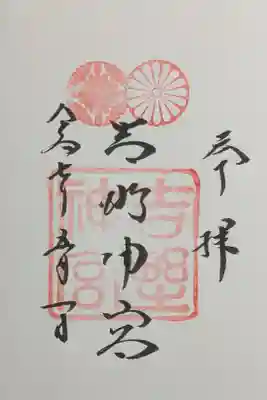 奉拝
吉野神宮
吉野
神宮
令和七年五月一日